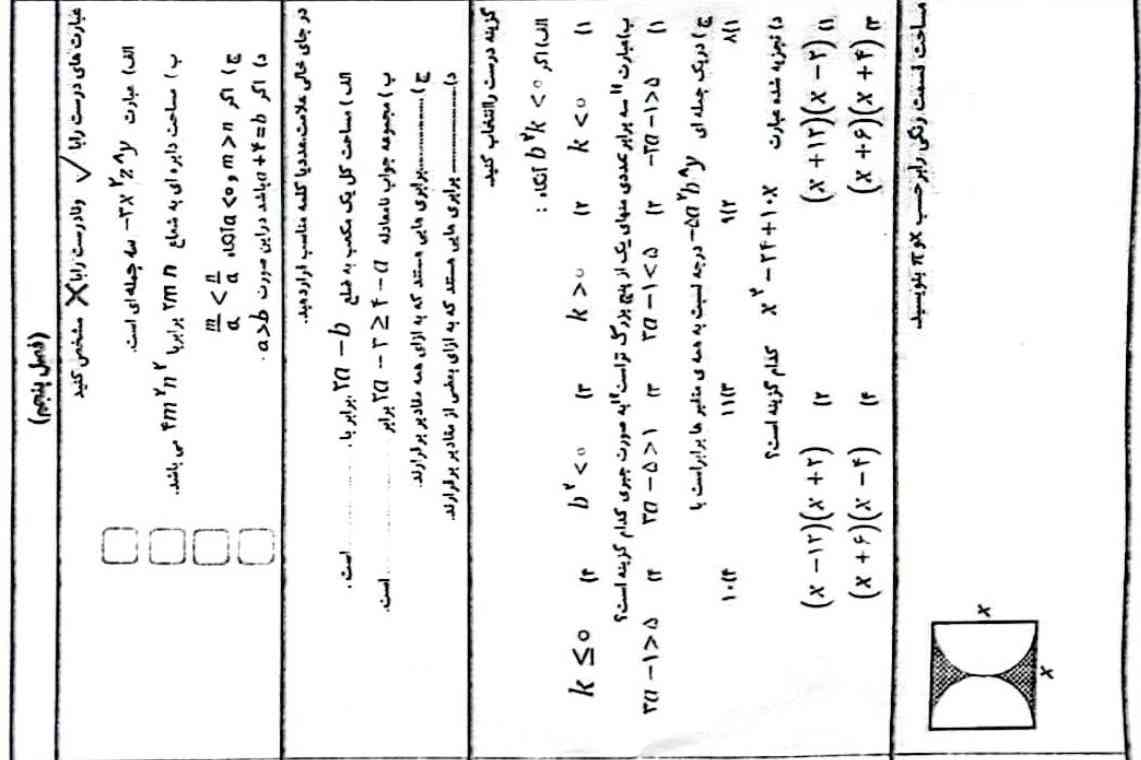 (فصل پنجم)
عبارت های درست را با ✓ و نادرست را با ✗ مشخص کنید
الف) عبارت −۳x²z⁸y سه جمله ای است.
ب) مساحت دایره ای به شعاع ۲mn برابر با ۴m²n² می باشد.
ج) اگر m>n و a<۰ آنگاه m/a < n/a
د) اگر a+۴=b باشد در این صورت a>b .
در جای خالی علامت، عدد یا کلمه مناسب قرار دهید.
الف) مساحت کل یک مکعب به ضلع ۲a−b برابر با ............ است.
ب) مجموعه جواب نامعادله ۲a−۲≥۴−a برابر ............ است.
ج) ............ برابری هایی هستند که به ازای همه مقادیر برقرارند.
د) ............ برابری هایی هستند که به ازای بعضی از مقادیر برقرارند.
گزینه درست را انتخاب کنید
الف) اگر b²k<۰ آنگاه :
۱) k<۰ ۲) k>۰ ۳) b²<۰ ۴) k≤۰
ب) عبارت "سه برابر عددی منهای یک از پنج بزرگ تر است" به صورت جبری کدام گزینه است؟
۱) −۳a−۱>۵ ۲) ۳a−۱<۵ ۳) ۳a−۵>۱ ۴) ۳a−۱>۵
ج) در یک جمله ای −۵a²b⁸y درجه نسبت به همه ی متغیر ها برابر است با
۱) ۸ ۲) ۹ ۳) ۱۱ ۴) ۱۰
د) تجزیه شده عبارت x²−۲۴+۱۰x کدام گزینه است؟
۱) (x+۱۲)(x−۲) ۲) (x−۱۲)(x+۲)
۳) (x+۶)(x+۴) ۴) (x+۶)(x−۴)
مساحت قسمت رنگی را بر حسب x و π بنویسید.
x
x